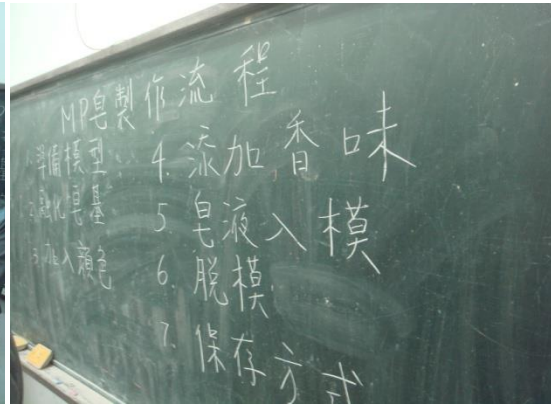 MP皂製作流程
1. 準備模型
2. 融化皂基
3. 加入顏色
4. 添加香味
5. 皂液入模
6. 脫模
7. 保存方式